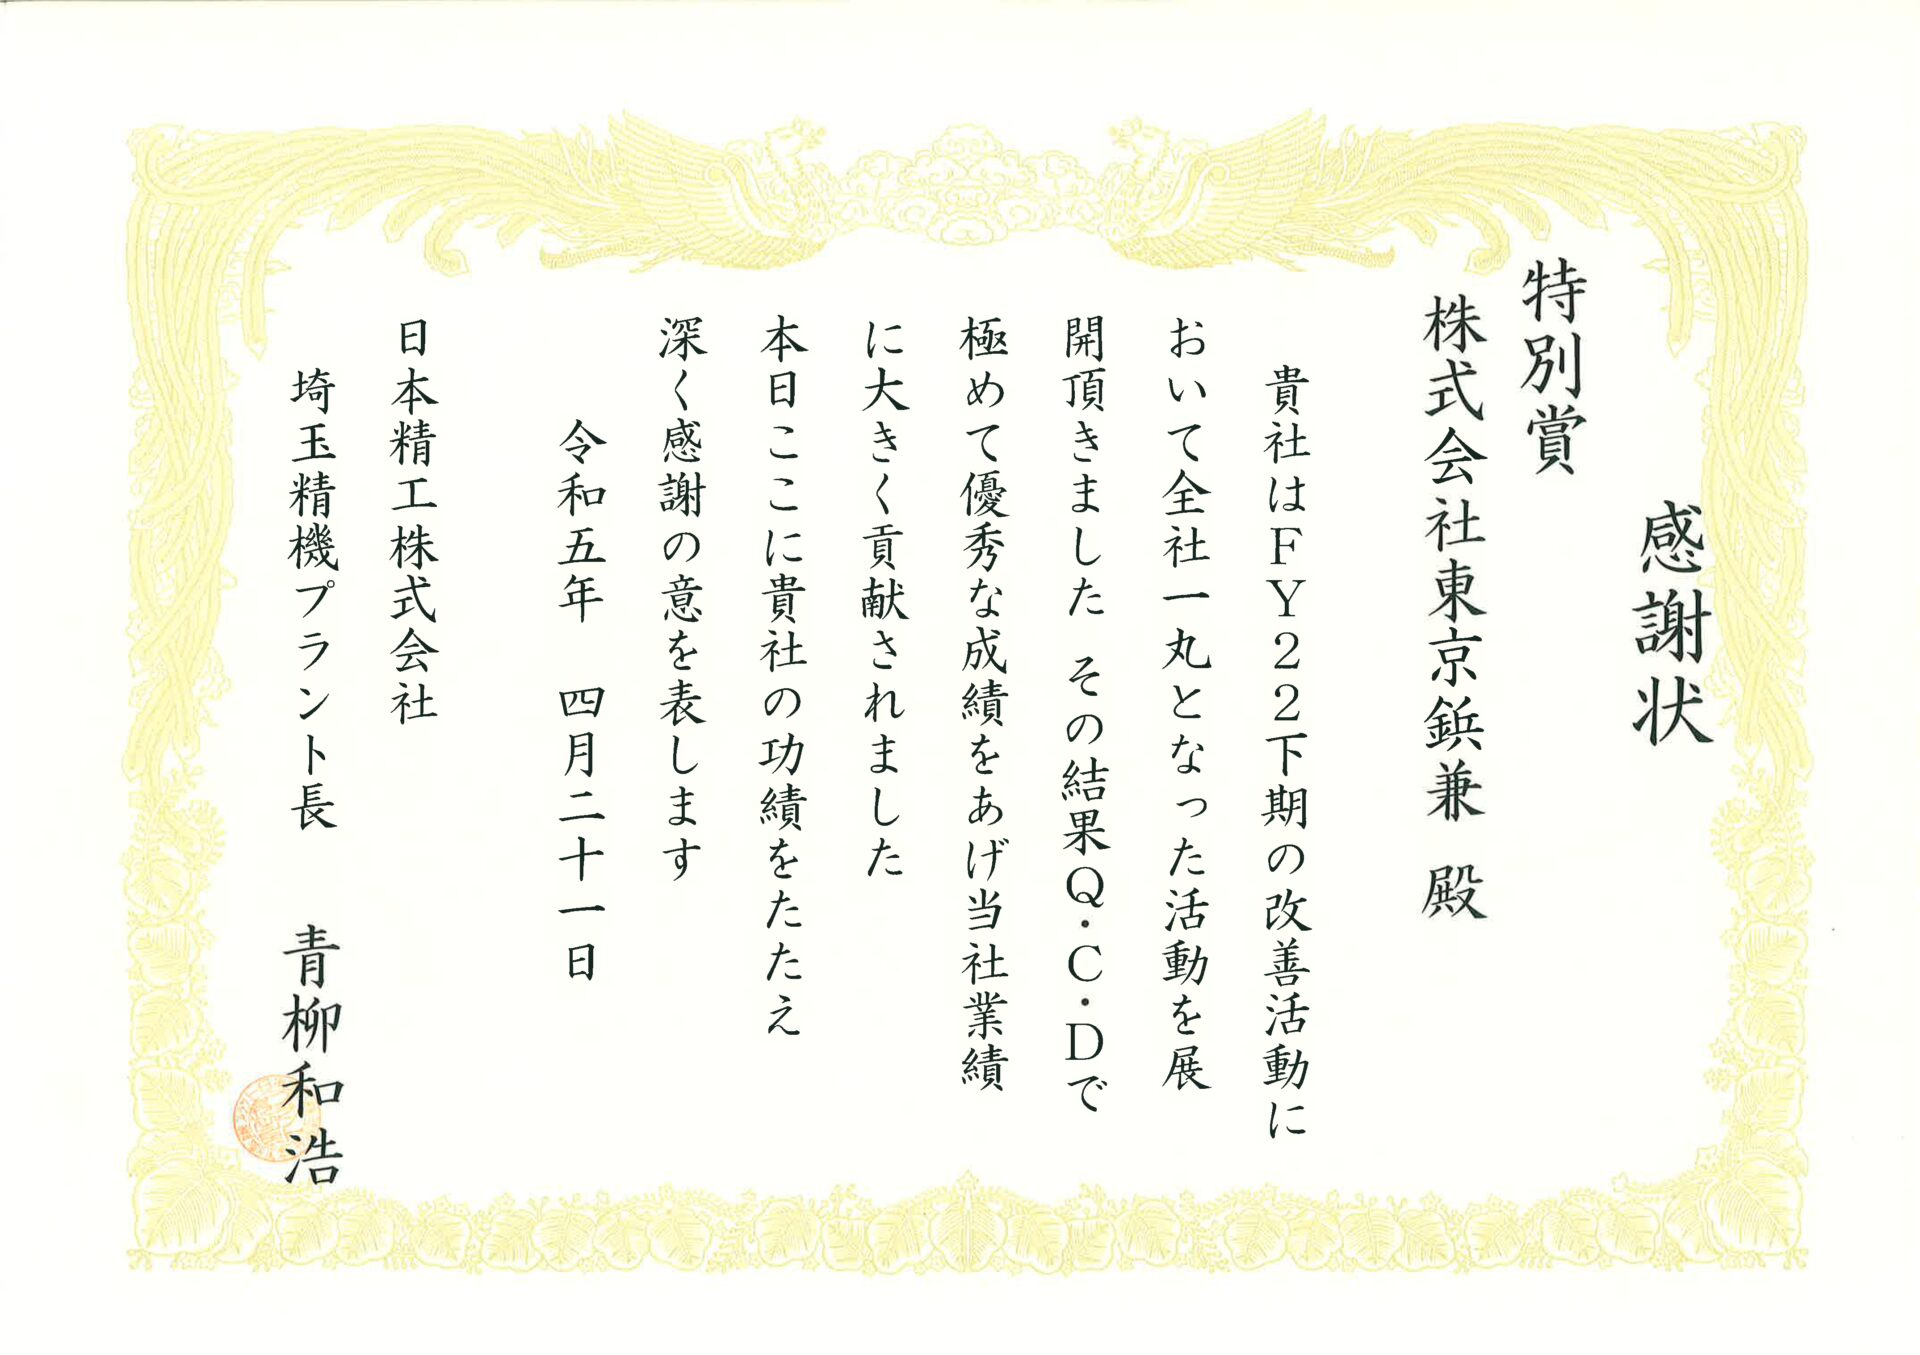 感謝状
特別賞
株式会社東京鋲兼 殿
貴社はFY22下期の改善活動に
おいて全社一丸となった活動を展
開頂きました その結果Q・C・Dで
極めて優秀な成績をあげ当社業績
に大きく貢献されました
本日ここに貴社の功績をたたえ
深く感謝の意を表します
令和五年 四月二十一日
日本精工株式会社
埼玉精機プラント長 青柳和浩